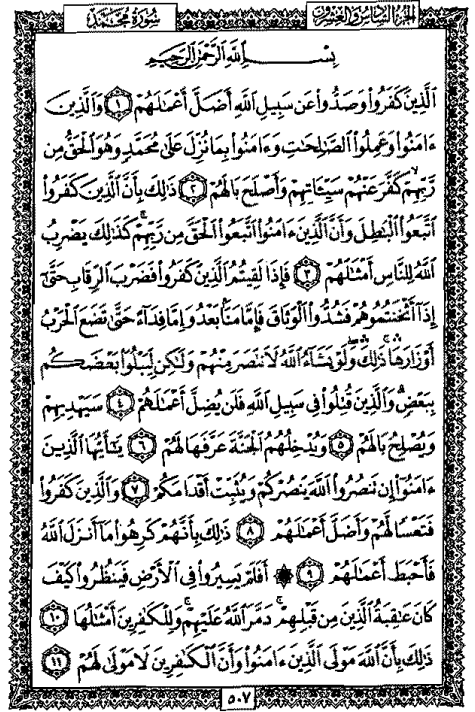 الجزء السادس والعشرون سورة محمد
بِسْمِ اللَّهِ الرَّحْمَٰنِ الرَّحِيمِ
الَّذِينَ كَفَرُوا وَصَدُّوا عَن سَبِيلِ اللَّهِ أَضَلَّ أَعْمَٰلَهُمْ ١ وَالَّذِينَ
ءَامَنُوا وَعَمِلُوا الصَّٰلِحَٰتِ وَءَامَنُوا بِمَا نُزِّلَ عَلَىٰ مُحَمَّدٍ وَهُوَ الْحَقُّ مِن
رَّبِّهِمْ كَفَّرَ عَنْهُمْ سَيِّـَٔاتِهِمْ وَأَصْلَحَ بَالَهُمْ ٢ ذَٰلِكَ بِأَنَّ الَّذِينَ كَفَرُوا
اتَّبَعُوا الْبَٰطِلَ وَأَنَّ الَّذِينَ ءَامَنُوا اتَّبَعُوا الْحَقَّ مِن رَّبِّهِمْ كَذَٰلِكَ يَضْرِبُ
اللَّهُ لِلنَّاسِ أَمْثَٰلَهُمْ ٣ فَإِذَا لَقِيتُمُ الَّذِينَ كَفَرُوا فَضَرْبَ الرِّقَابِ حَتَّىٰٓ
إِذَآ أَثْخَنتُمُوهُمْ فَشُدُّوا الْوَثَاقَ فَإِمَّا مَنًّۢا بَعْدُ وَإِمَّا فِدَآءً حَتَّىٰ تَضَعَ الْحَرْبُ
أَوْزَارَهَا ذَٰلِكَ وَلَوْ يَشَآءُ اللَّهُ لَانتَصَرَ مِنْهُمْ وَلَٰكِن لِّيَبْلُوَا بَعْضَكُم
بِبَعْضٍ وَالَّذِينَ قُتِلُوا فِي سَبِيلِ اللَّهِ فَلَن يُضِلَّ أَعْمَٰلَهُمْ ٤ سَيَهْدِيهِمْ
وَيُصْلِحُ بَالَهُمْ ٥ وَيُدْخِلُهُمُ الْجَنَّةَ عَرَّفَهَا لَهُمْ ٦ يَٰٓأَيُّهَا الَّذِينَ
ءَامَنُوٓا إِن تَنصُرُوا اللَّهَ يَنصُرْكُمْ وَيُثَبِّتْ أَقْدَامَكُمْ ٧ وَالَّذِينَ كَفَرُوا
فَتَعْسًا لَّهُمْ وَأَضَلَّ أَعْمَٰلَهُمْ ٨ ذَٰلِكَ بِأَنَّهُمْ كَرِهُوا مَآ أَنزَلَ اللَّهُ
فَأَحْبَطَ أَعْمَٰلَهُمْ ٩ ۞ أَفَلَمْ يَسِيرُوا فِي الْأَرْضِ فَيَنظُرُوا كَيْفَ
كَانَ عَٰقِبَةُ الَّذِينَ مِن قَبْلِهِمْ دَمَّرَ اللَّهُ عَلَيْهِمْ وَلِلْكَٰفِرِينَ أَمْثَٰلُهَا ١٠
ذَٰلِكَ بِأَنَّ اللَّهَ مَوْلَى الَّذِينَ ءَامَنُوا وَأَنَّ الْكَٰفِرِينَ لَا مَوْلَىٰ لَهُمْ ١١
٥٠٧